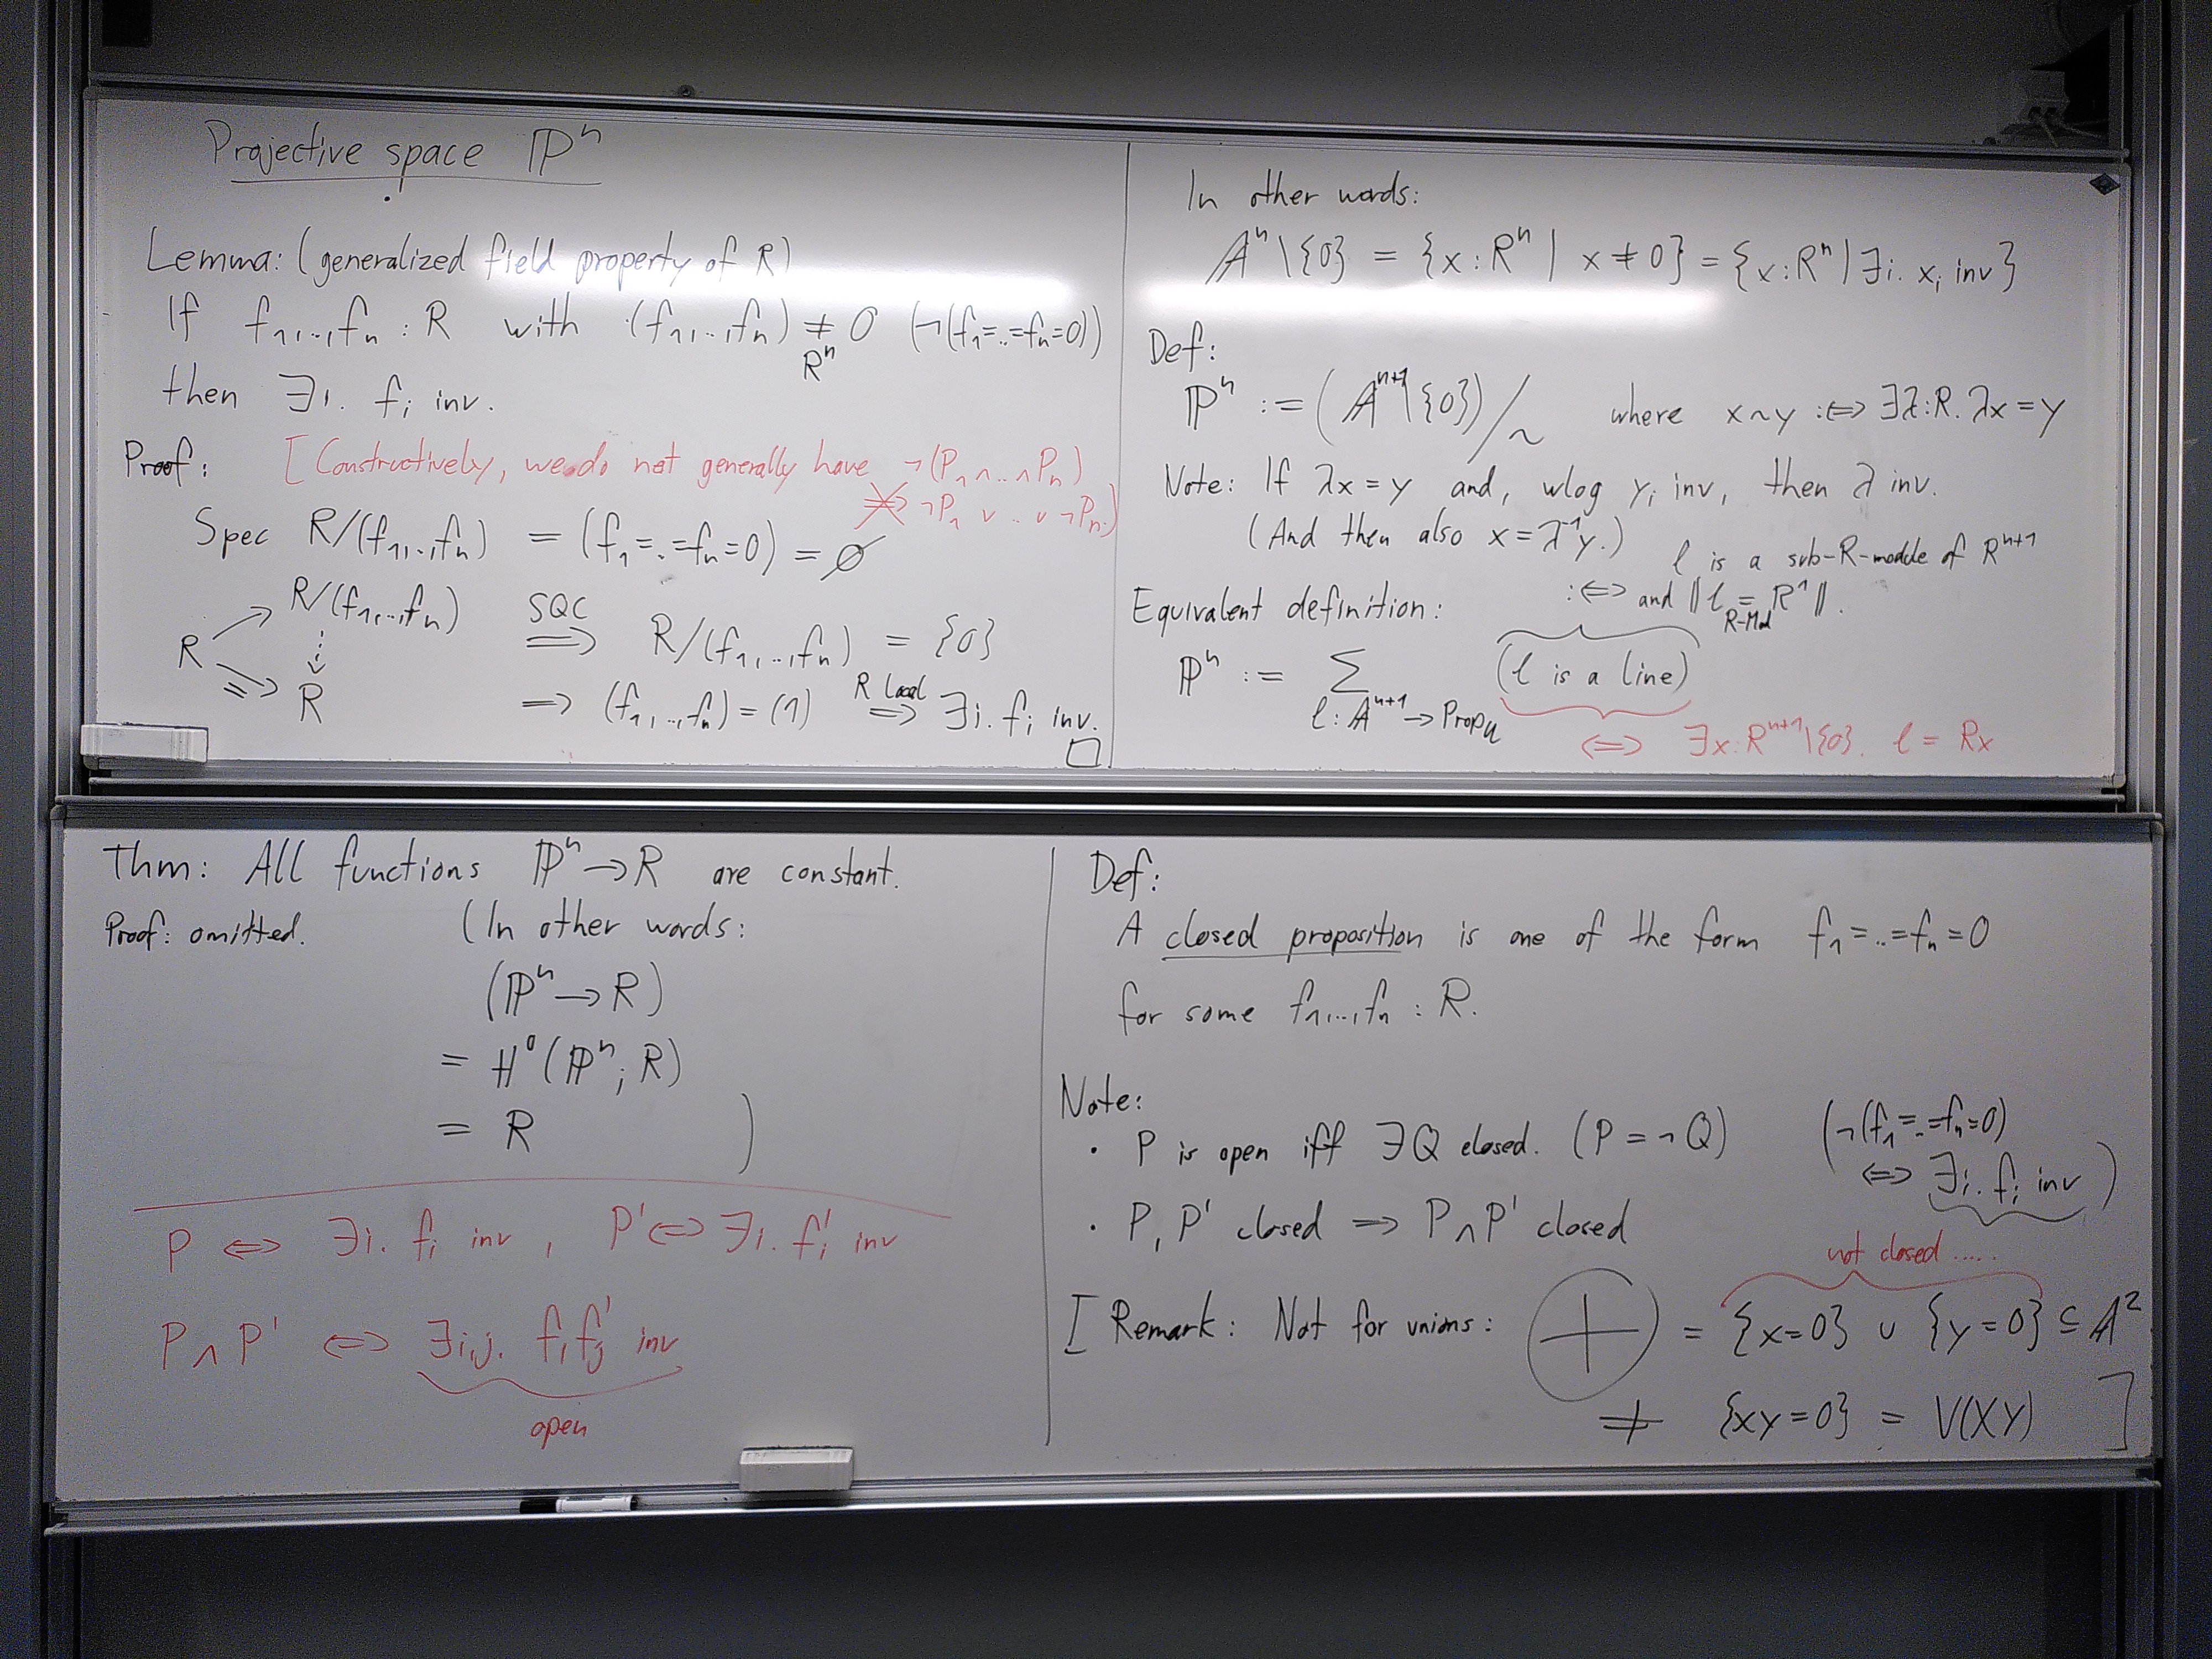 Projective space ℙⁿ
Lemma: (generalized field property of R)
If f₁,..,fₙ : R with (f₁,..,fₙ) ≠_{Rⁿ} 0 (¬(f₁=..=fₙ=0))
then ∃i. fᵢ inv.
Proof: [Constructively, we do not generally have ¬(P₁∧..∧Pₙ)
⇏ ¬P₁ ∨ .. ∨ ¬Pₙ.)
Spec R/(f₁,..,fₙ) = (f₁=..=fₙ=0) = ∅
R → R/(f₁,..,fₙ) ⇢ R
SQC ⟹ R/(f₁,..,fₙ) = {0}
⟹ (f₁,..,fₙ) = (1) R local ⟹ ∃i. fᵢ inv. □
In other words:
𝔸ⁿ\{0} = {x:Rⁿ | x≠0} = {x:Rⁿ | ∃i. xᵢ inv}
Def:
ℙⁿ := (𝔸ⁿ⁺¹\{0})/∼ where x∼y :⟺ ∃λ:R. λx=y
Note: If λx=y and, wlog yᵢ inv, then λ inv.
(And then also x=λ⁻¹y.)
ℓ is a sub-R-module of Rⁿ⁺¹
:⟺ and ‖ℓ =_{R-Mod} R¹‖.
Equivalent definition:
ℙⁿ := ∑_{ℓ:𝔸ⁿ⁺¹→Prop_𝒰} (ℓ is a line)
⟺ ∃x:Rⁿ⁺¹\{0}. ℓ = Rx
Thm: All functions ℙⁿ→R are constant.
Proof: omitted. (In other words:
(ℙⁿ→R)
= H⁰(ℙⁿ; R)
= R )
P ⟺ ∃i. fᵢ inv, P' ⟺ ∃i. fᵢ' inv
P∧P' ⟺ ∃i,j. fᵢfⱼ' inv
open
Def:
A closed proposition is one of the form f₁=..=fₙ=0
for some f₁,..,fₙ : R.
Note:
• P is open iff ∃Q closed. (P=¬Q) (¬(f₁=..=fₙ=0)
⟺ ∃i. fᵢ inv)
• P, P' closed ⟹ P∧P' closed
not closed .....
[Remark: Not for unions: = {x=0} ∪ {y=0} ⊆ 𝔸²
≠ {xy=0} = V(XY) ]